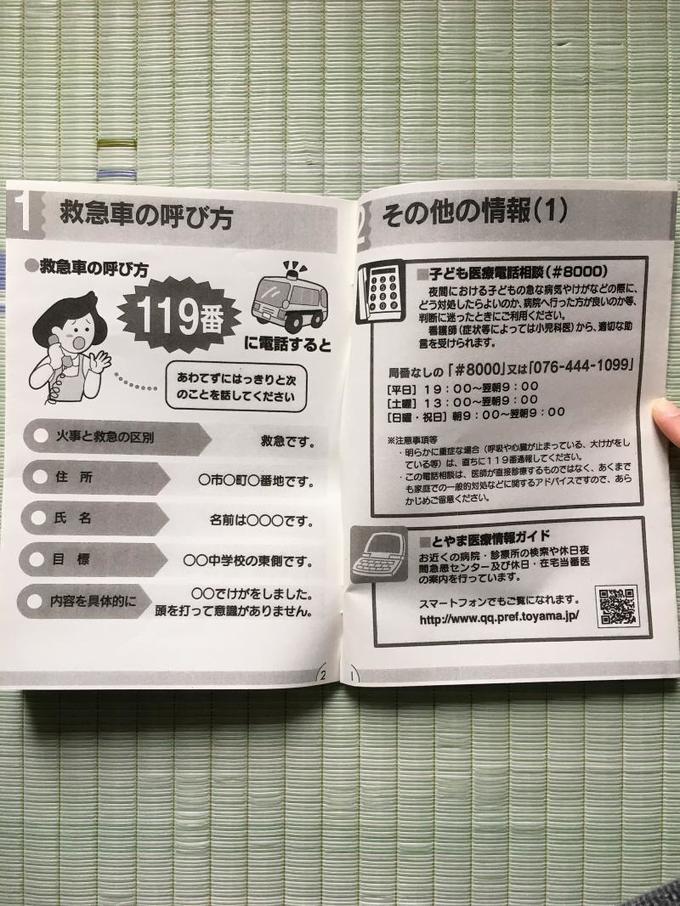 1 救急車の呼び方
●救急車の呼び方
119番
に電話すると
あわてずにはっきりと次
のことを話してください
火事と救急の区別 救急です。
住 所 〇市〇町〇番地です。
氏 名 名前は〇〇〇です。
目 標 〇〇中学校の東側です。
内容を具体的に 〇〇でけがをしました。
頭を打って意識がありません。
2
2 その他の情報(1)
■子ども医療電話相談(#8000)
夜間における子どもの急な病気やけがなどの際に、
どう対処したらよいのか、病院へ行った方が良いのか等、
判断に迷ったときにご利用ください。
看護師(症状等によっては小児科医)から、適切な助
言を受けられます。
局番なしの「#8000」又は「076-444-1099」
[平日] 19:00〜翌朝9:00
[土曜] 13:00〜翌朝9:00
[日曜・祝日] 朝9:00〜翌朝9:00
※注意事項等
・明らかに重症な場合(呼吸や心臓が止まっている、大けがをし
ている等)は、直ちに119番通報してください。
・この電話相談は、医師が直接診療するものではなく、あくまで
も家庭での一般的対処などに関するアドバイスですので、あら
かじめご留意ください。
■とやま医療情報ガイド
お近くの病院・診療所の検索や休日夜
間急患センター及び休日・在宅当番医
の案内を行っています。
スマートフォンでもご覧になれます。
http://www.qq.pref.toyama.jp/
1